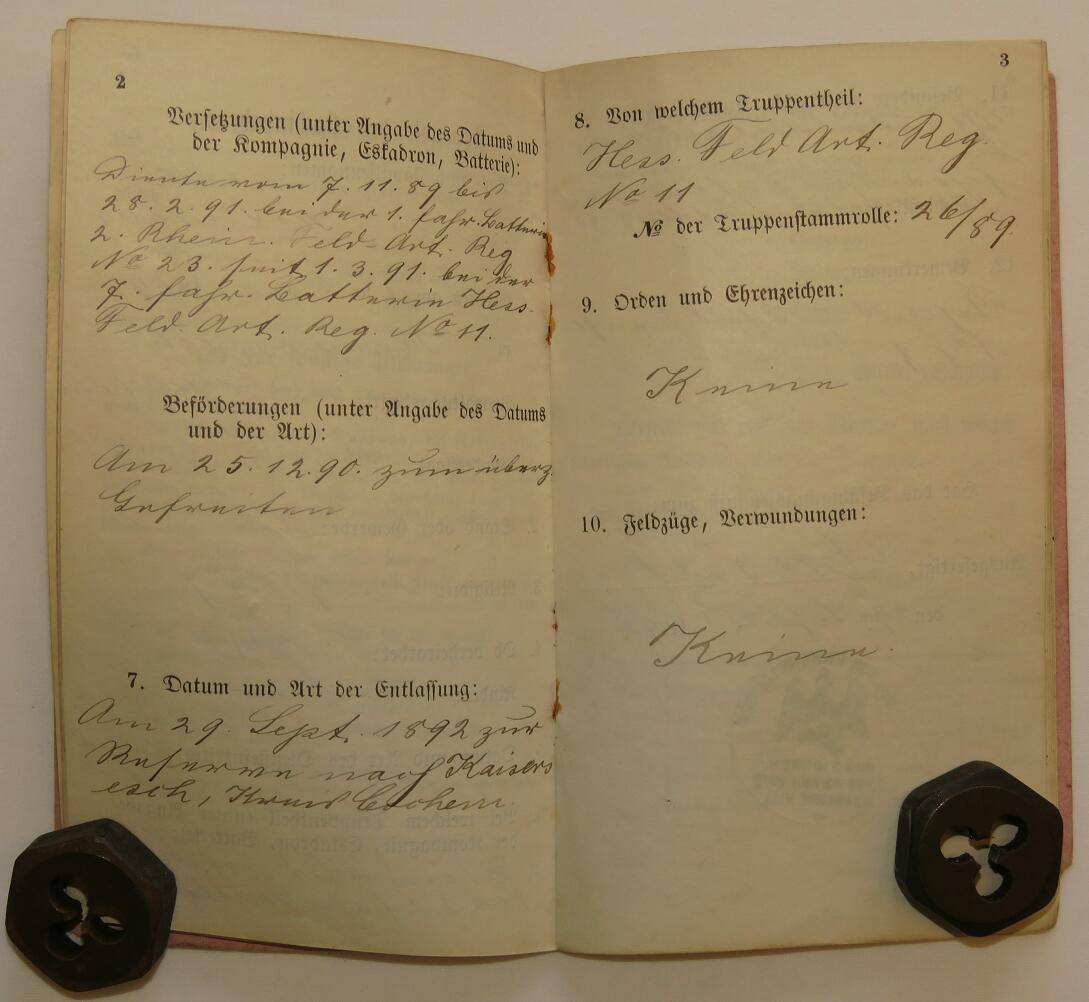 2
Versetzungen (unter Angabe des Datums und
der Kompagnie, Eskadron, Batterie):
Diente vom 7. 11. 89 bis
28. 2. 91. bei der 1. fahr. Batterie
2. Rhein. Feld-Art. Reg
No 23. seit 1. 3. 91. bei der
7. fahr. Batterie Hess.
Feld-Art. Reg. No 11.
Beförderungen (unter Angabe des Datums
und der Art):
Am 25. 12. 90. zum überz.
Gefreiten
7. Datum und Art der Entlassung:
Am 29. Sept. 1892 zur
Reserve nach Kaisers
esch, Kreis Cochem.
3
8. Von welchem Truppentheil:
Hess. Feld Art. Reg.
No 11
№ der Truppenstammrolle: 26/89.
9. Orden und Ehrenzeichen:
Keine
10. Feldzüge, Verwundungen:
Keine.